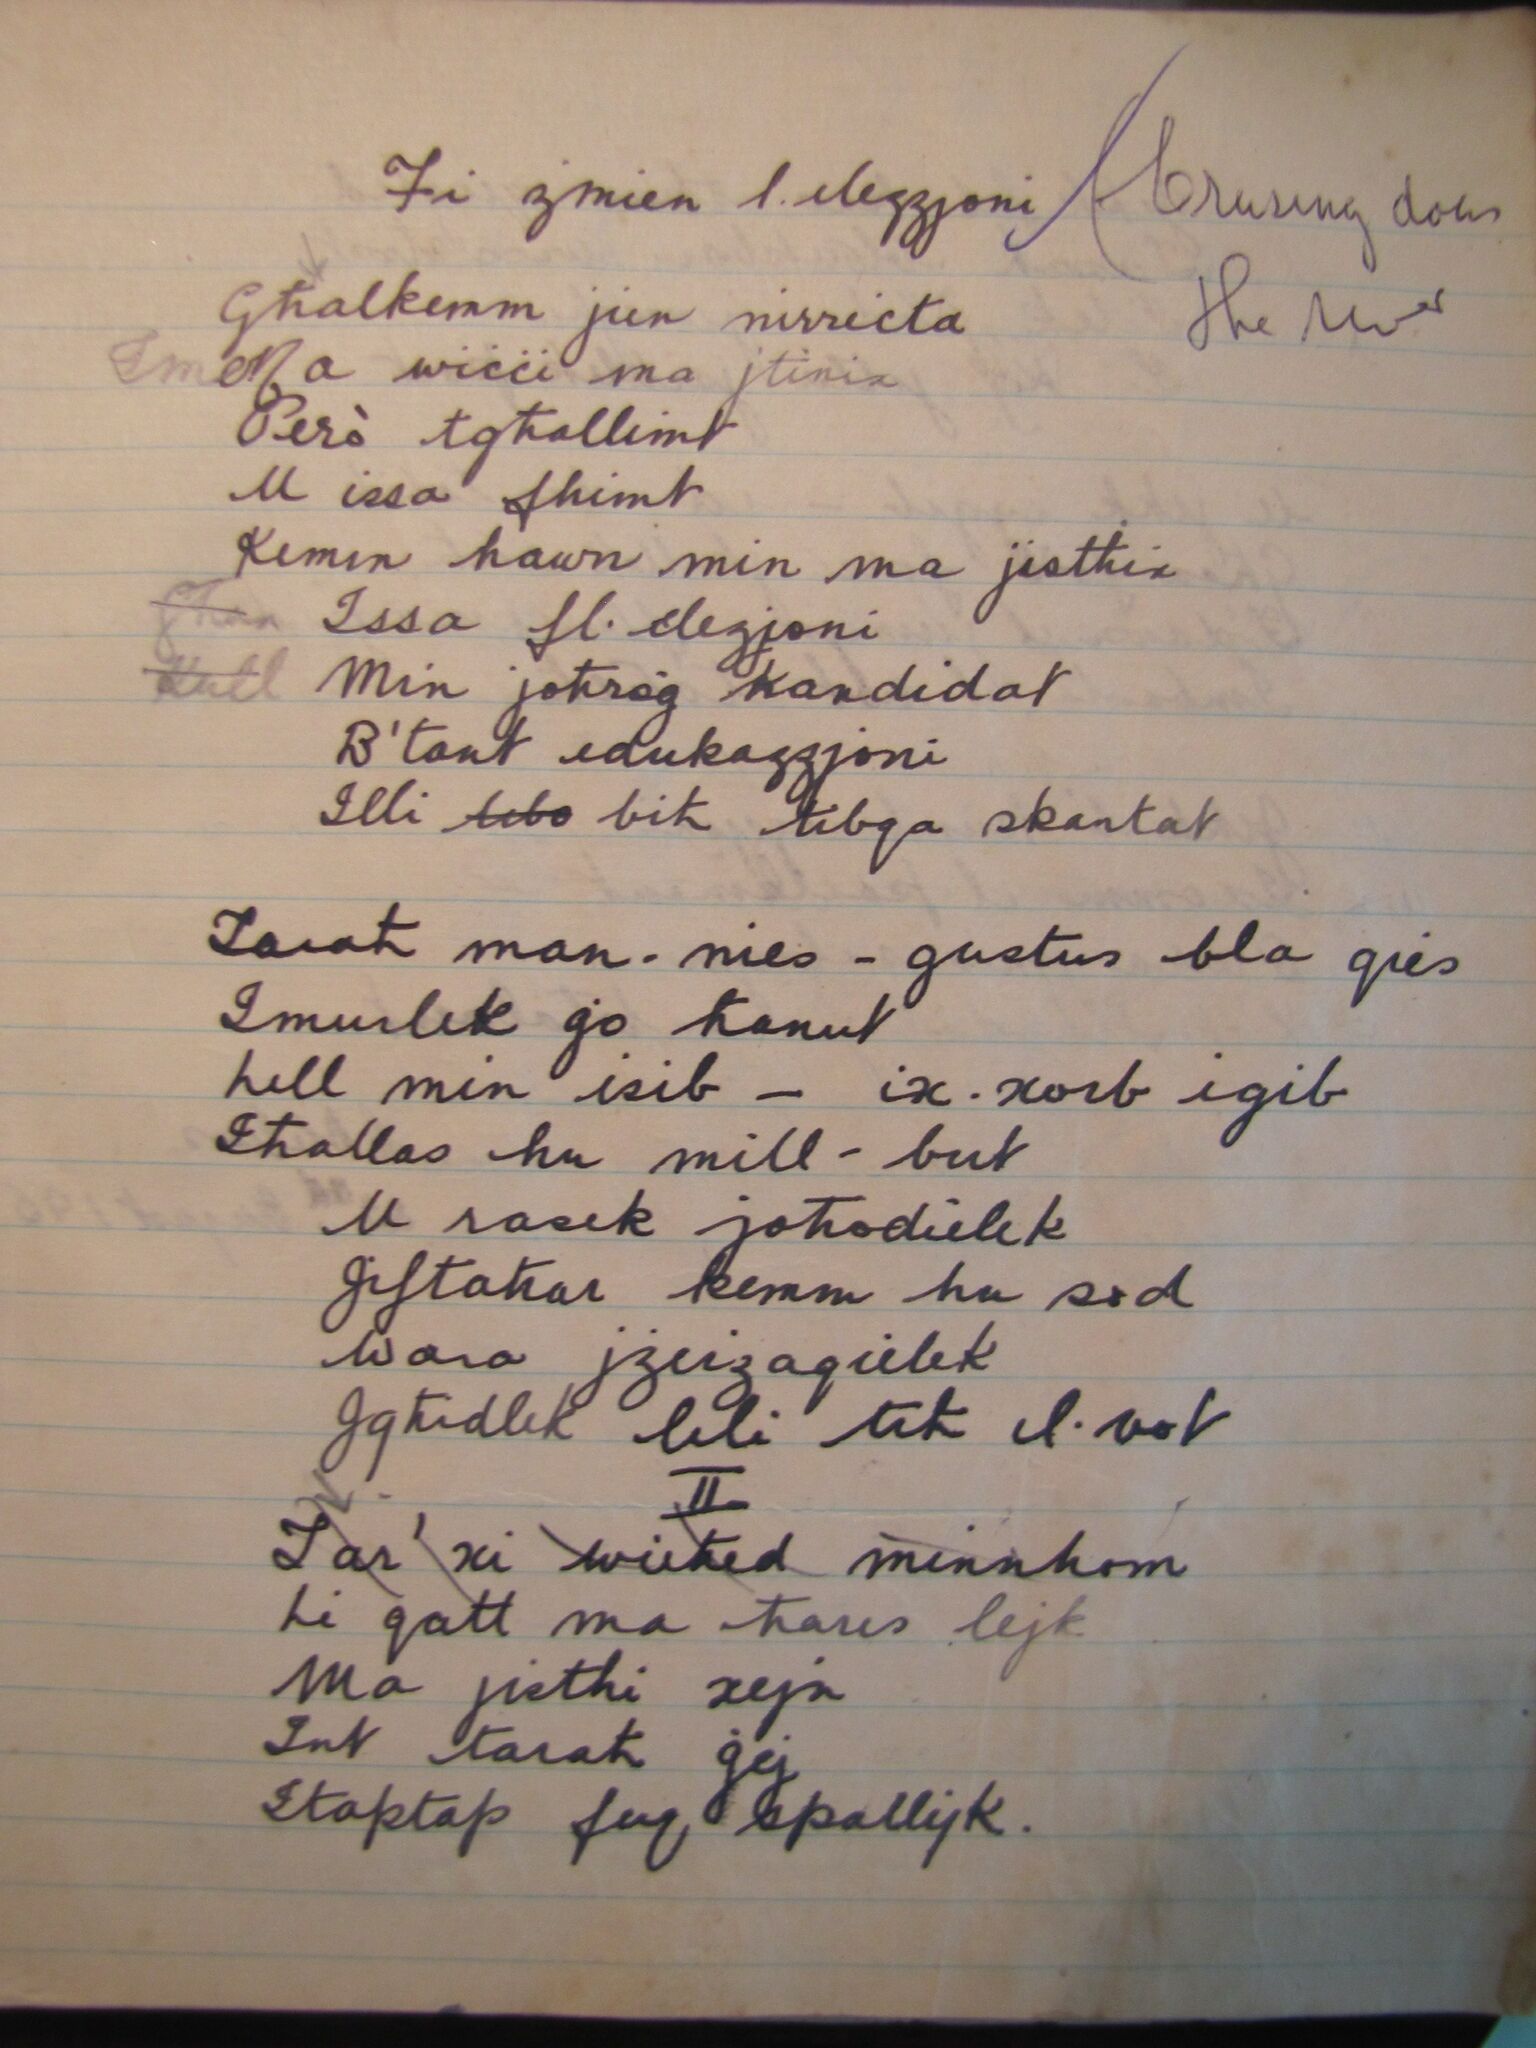 Fi żmien l. elezzjoni (Cruising down
the River
Għalkemm jien nirreċta
Ma wiċċi ma jtinix
Però tgħallimt
U issa fhimt
Kemm hawn min ma jistħix
Issa fl. elezjoni
Kull Min joħroġ kandidat
B'tant edukazzjoni
Illi bih tibqa skantat
Tarah man-nies - gustus bla qies
Imurlek ġo ħanut
hell min isib - ix-xorb igib
Iħallas hu mill-but
U rasek joħodielek
Jiftaħar kemm hu sod
Wara jżeizaqielek
Jgħidlek leli tih il-vot
II
Tar' xi wieħed minnhom
li qatt ma ħares lejk
Ma jistħi xejn
Int tarah ġej
Itaptap fuq spallejk.